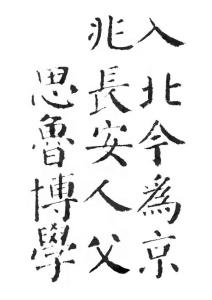 入北今爲京
兆長安人父
思魯博學